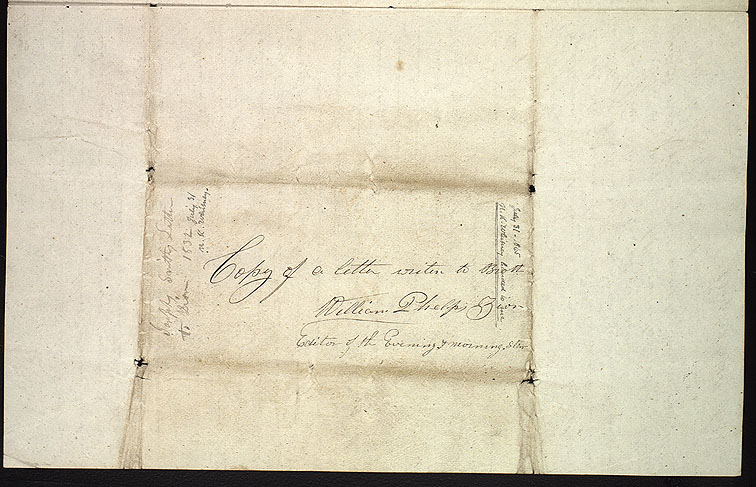 Joseph Smith's Letter
to Zion 1832 July 31
N. K. Whitney.
Copy of a letter writen to Broth
William Phelps Zion
Editor of th Evening & morning Star
July 31.
N. K. Whitney to me